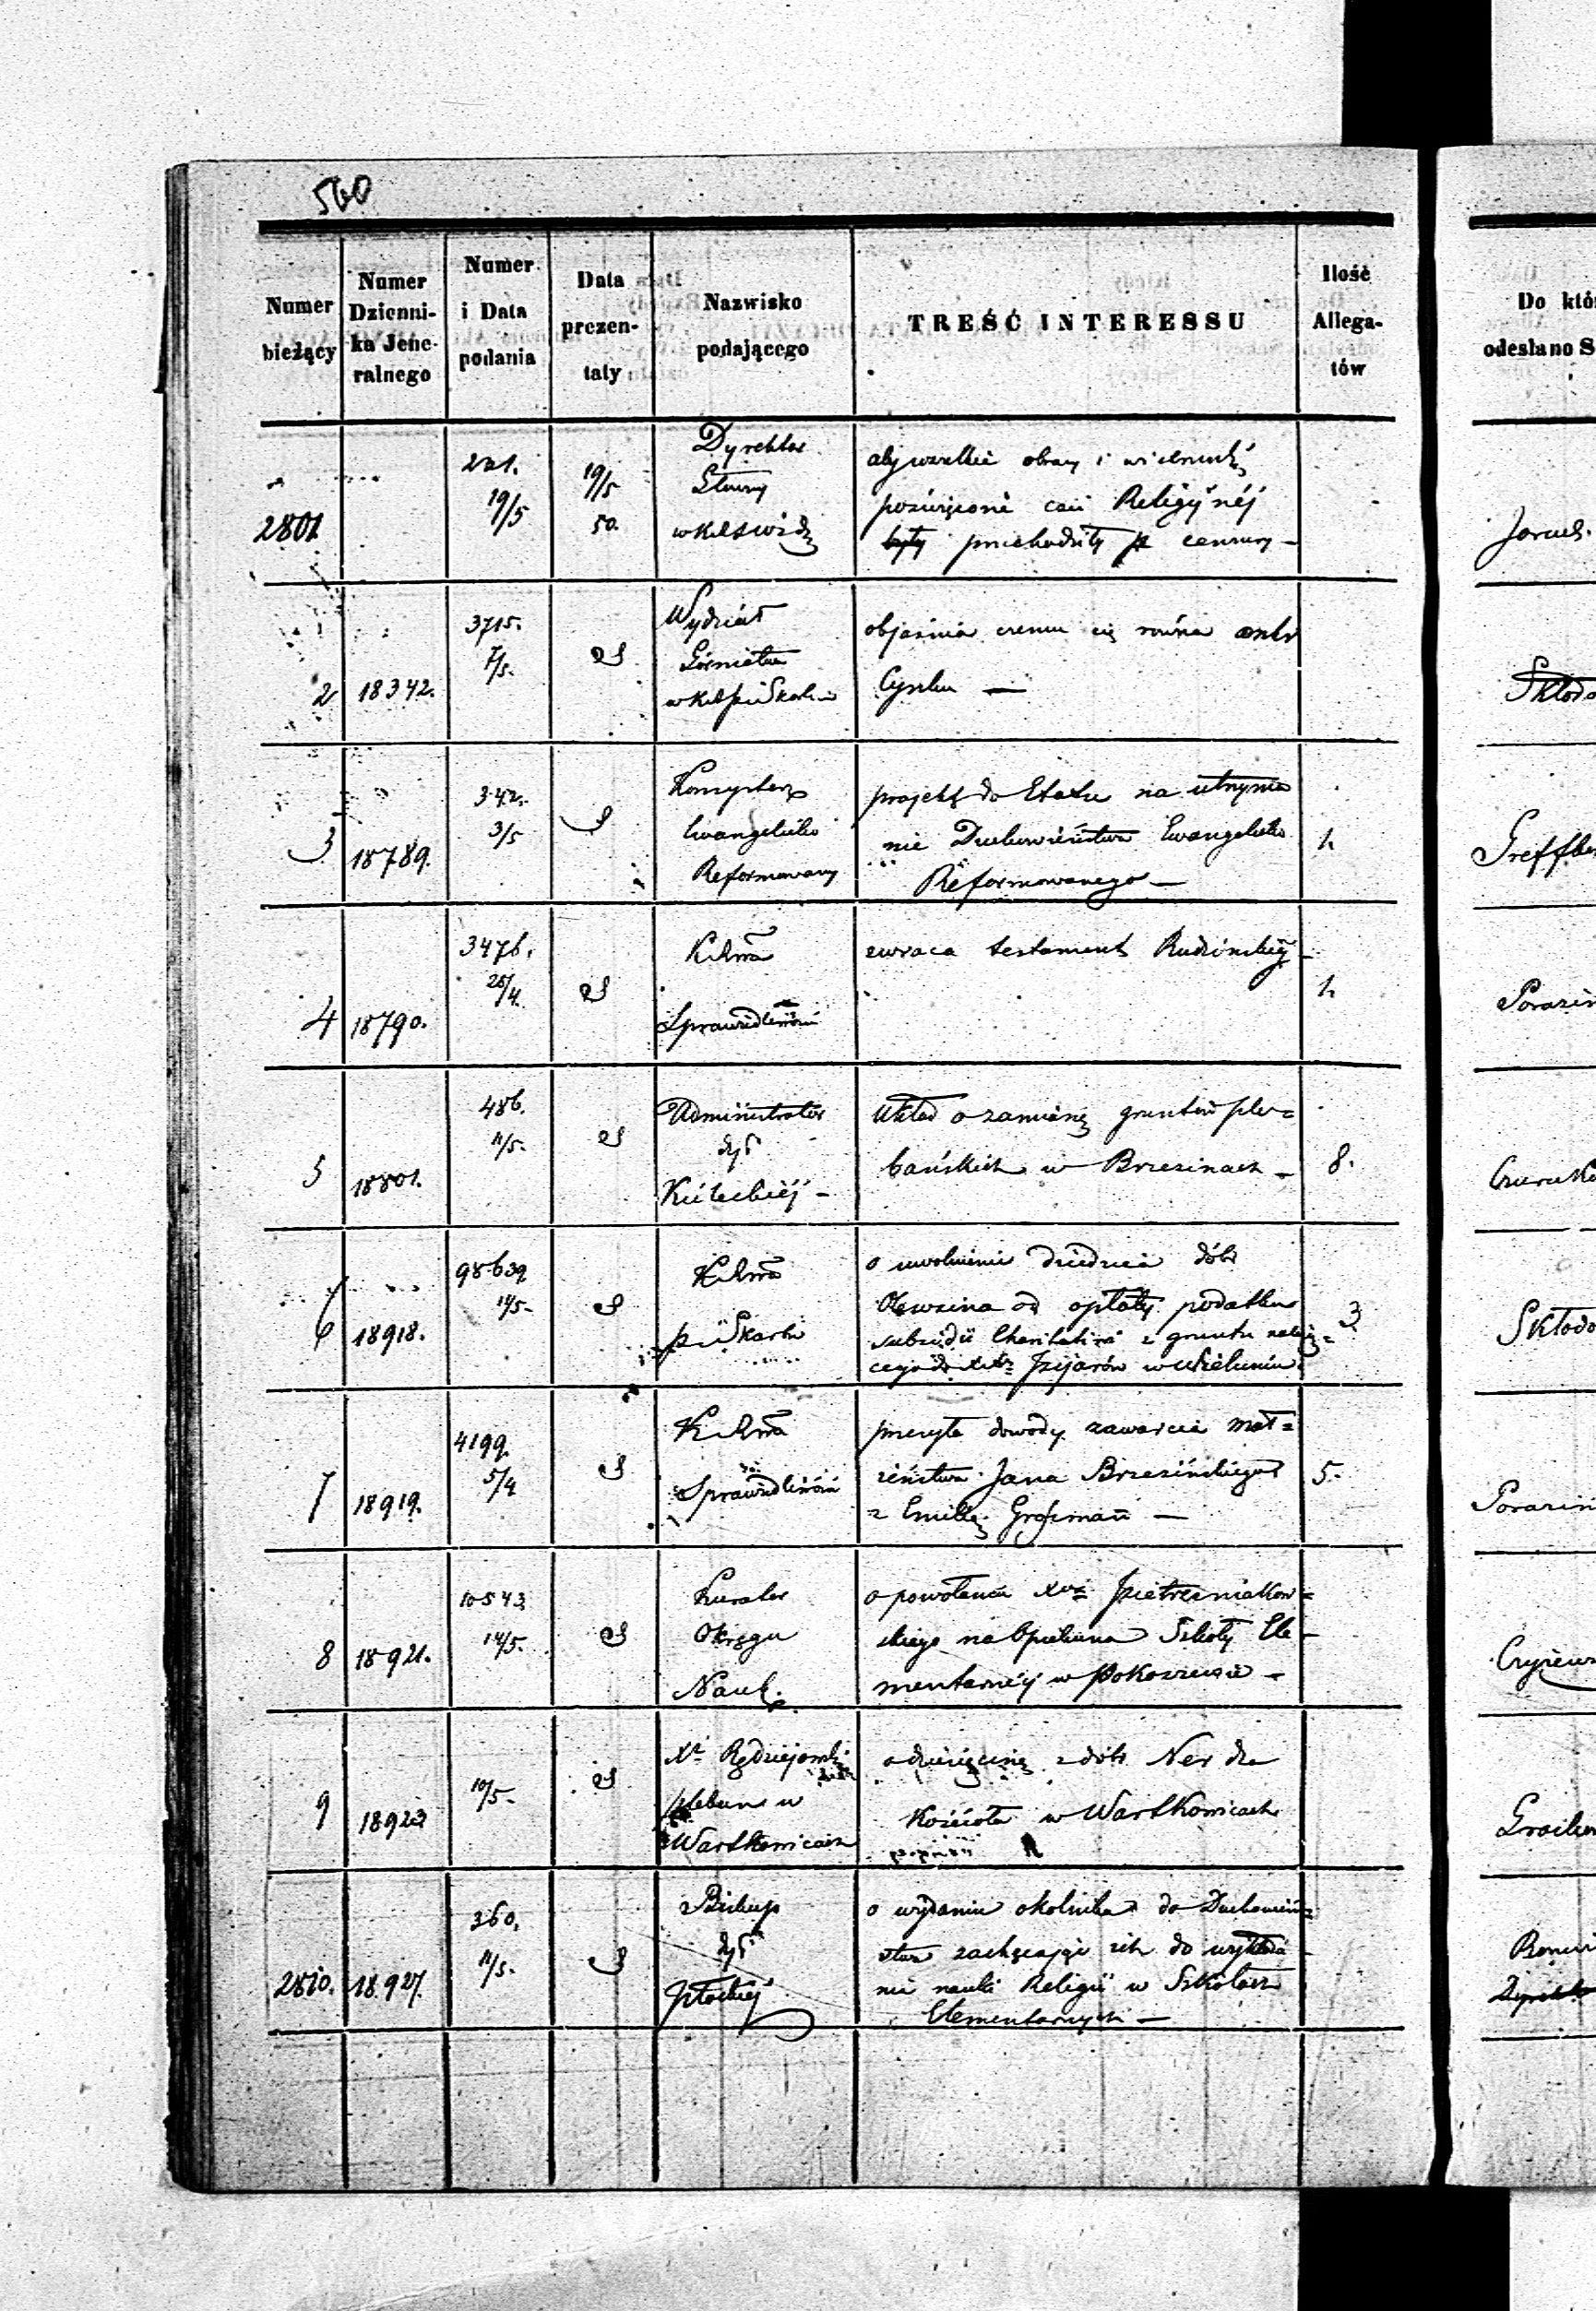 560
Numer bieżący
Numer Dzienni-ka Jene-ralnego
Numer i Data podania
Data prezen-taty
Nazwisko podającego
TREŚĆ INTERESSU
Ilość Allega-tów
Do któ
odesłano S
2801
221.
19/5
19/5
50.
Dyrektor
obrazy i
poświęcone czci Religijnéj
były przechodziły pr cenzurę —
2
18342.
3715.
7/5.
Wydział
Górnictwa
objaśnia czemu się równa
3
18789.
342.
3/5
Konsystorz
Ewangelicko
Reformowany
projekt do Etatu na utrzyma
nie Duchowieństwa Ewangelicko
Reformowanego —
1.
Greffbe
4
18790.
3476.
25/4.
Sprawiedliwości
zwraca testament Rudzińskiéj
1.
Porazin
5
18801.
486.
11/5.
Administrator
dyć
Kieleckiéj —
Układ o zamianę gruntów ple=
bańskich w Brzezinach —
8.
6
18918.
98639
11/5.
pi Skarbu
o uwolnienie dziedzica dóbr
od opłaty podatku
subsidii Charitativi z gruntu należą=
cego do XXży Pijarów w Wieluniu
3
Skłodo
7
18919.
4199.
5/4
Sprawiedliwości
przesyła dowody zawarcia mał=
żeństwa Jana Brzezińskiego
z Emilią Grosman —
5.
Porazin
8
18921.
10543
14/5.
Kurator
Okręgu
Nauk.
o powołaniu Xdza Pietrzeniakow=
skiego na Opiekuna Szkoły Ele-
mentarnéj w
9
18923
10/5.
Xż Rędziejowski
pleban w
Wartkowicach
o dziesięcinę z dóbr Ner dla
Kościoła w Wartkowicach
2810.
18927.
360.
11/5.
Biskup
dyć
Płockiéj
o wydaniu okolnika do Duchowień=
stwa zachęcając ich do wykłada
nia nauki Religii w Szkołach
Elementarnych —